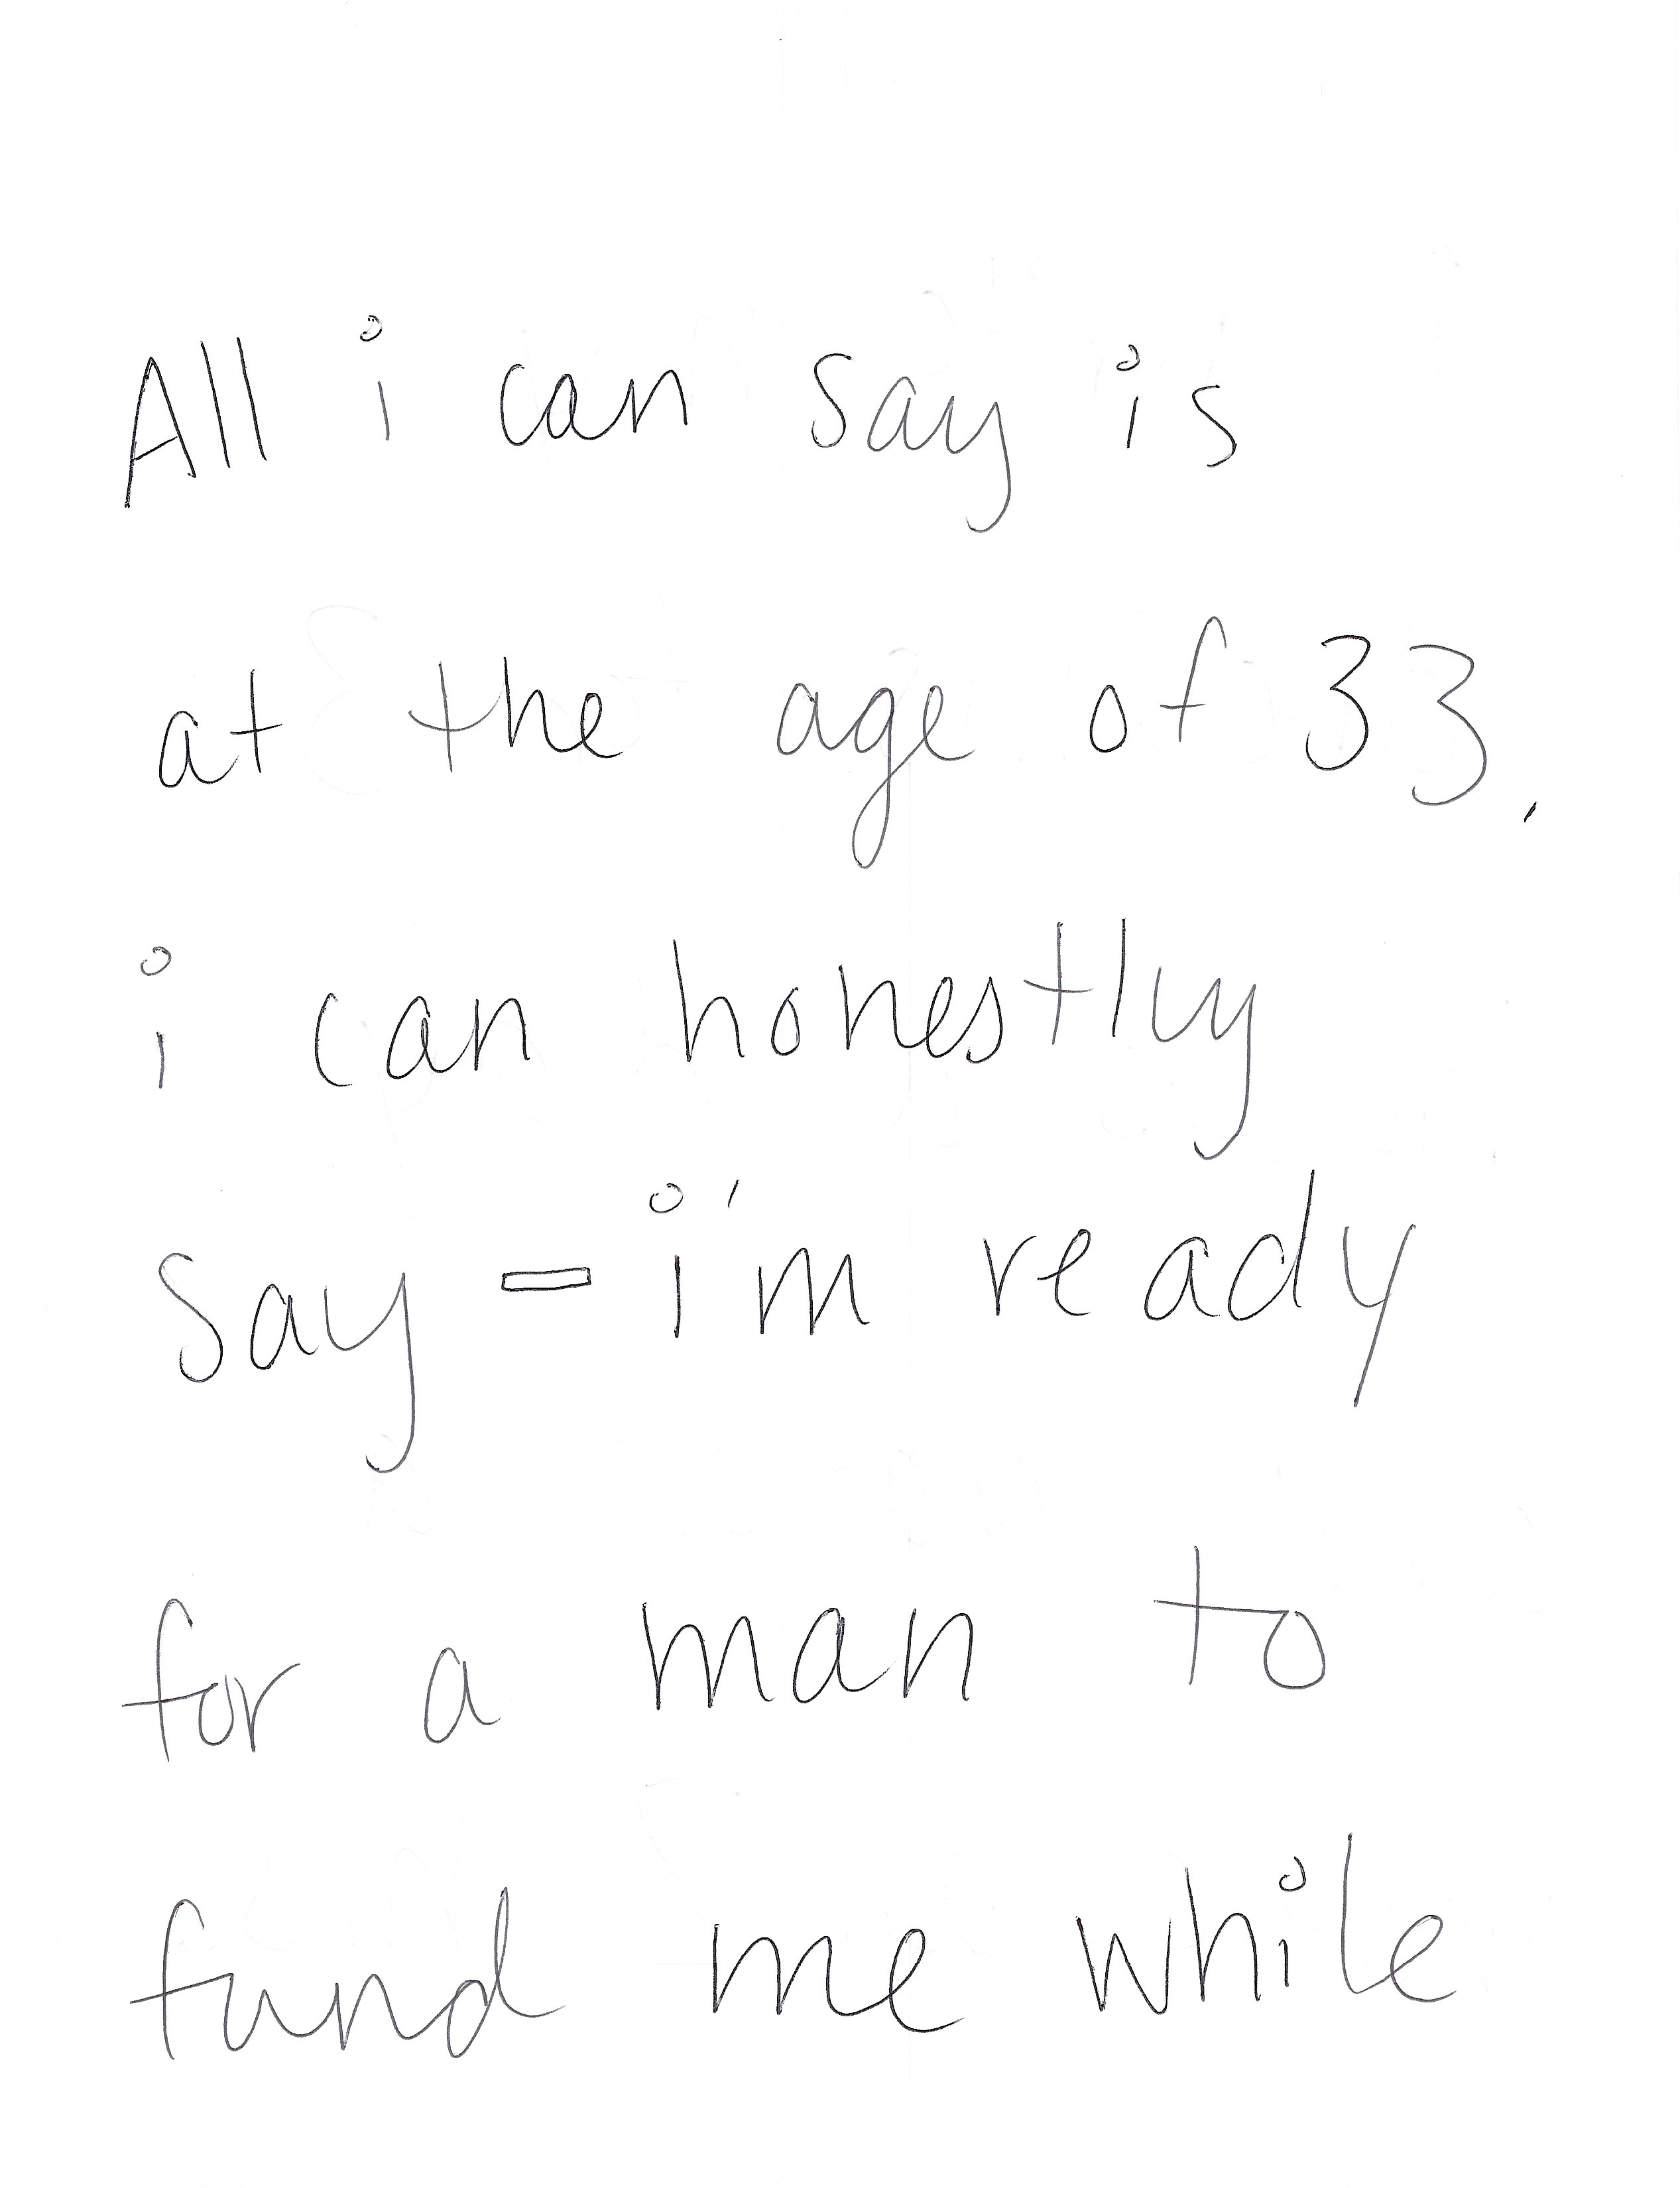 All i can say is
at the age of 33,
i can honestly
say - i'm ready
for a man to
fund me while